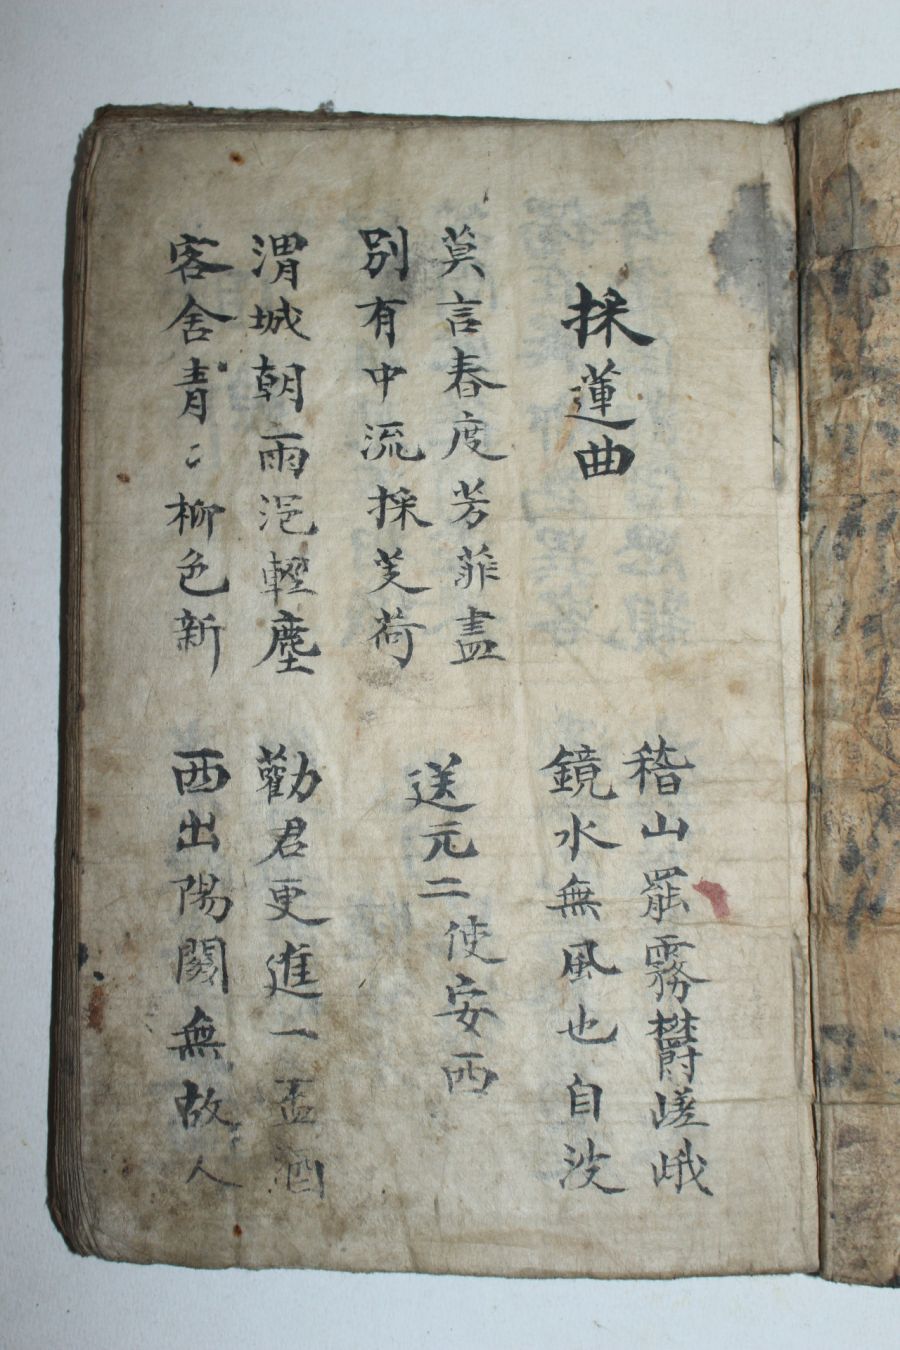 採蓮曲
稽山罷霧鬱嵯峨
鏡水無風也自波
莫言春度芳菲盡
別有中流採芰荷
送元二使安西
渭城朝雨浥輕塵
客舍青〻柳色新
勸君更進一盃酒
西出陽關無故人